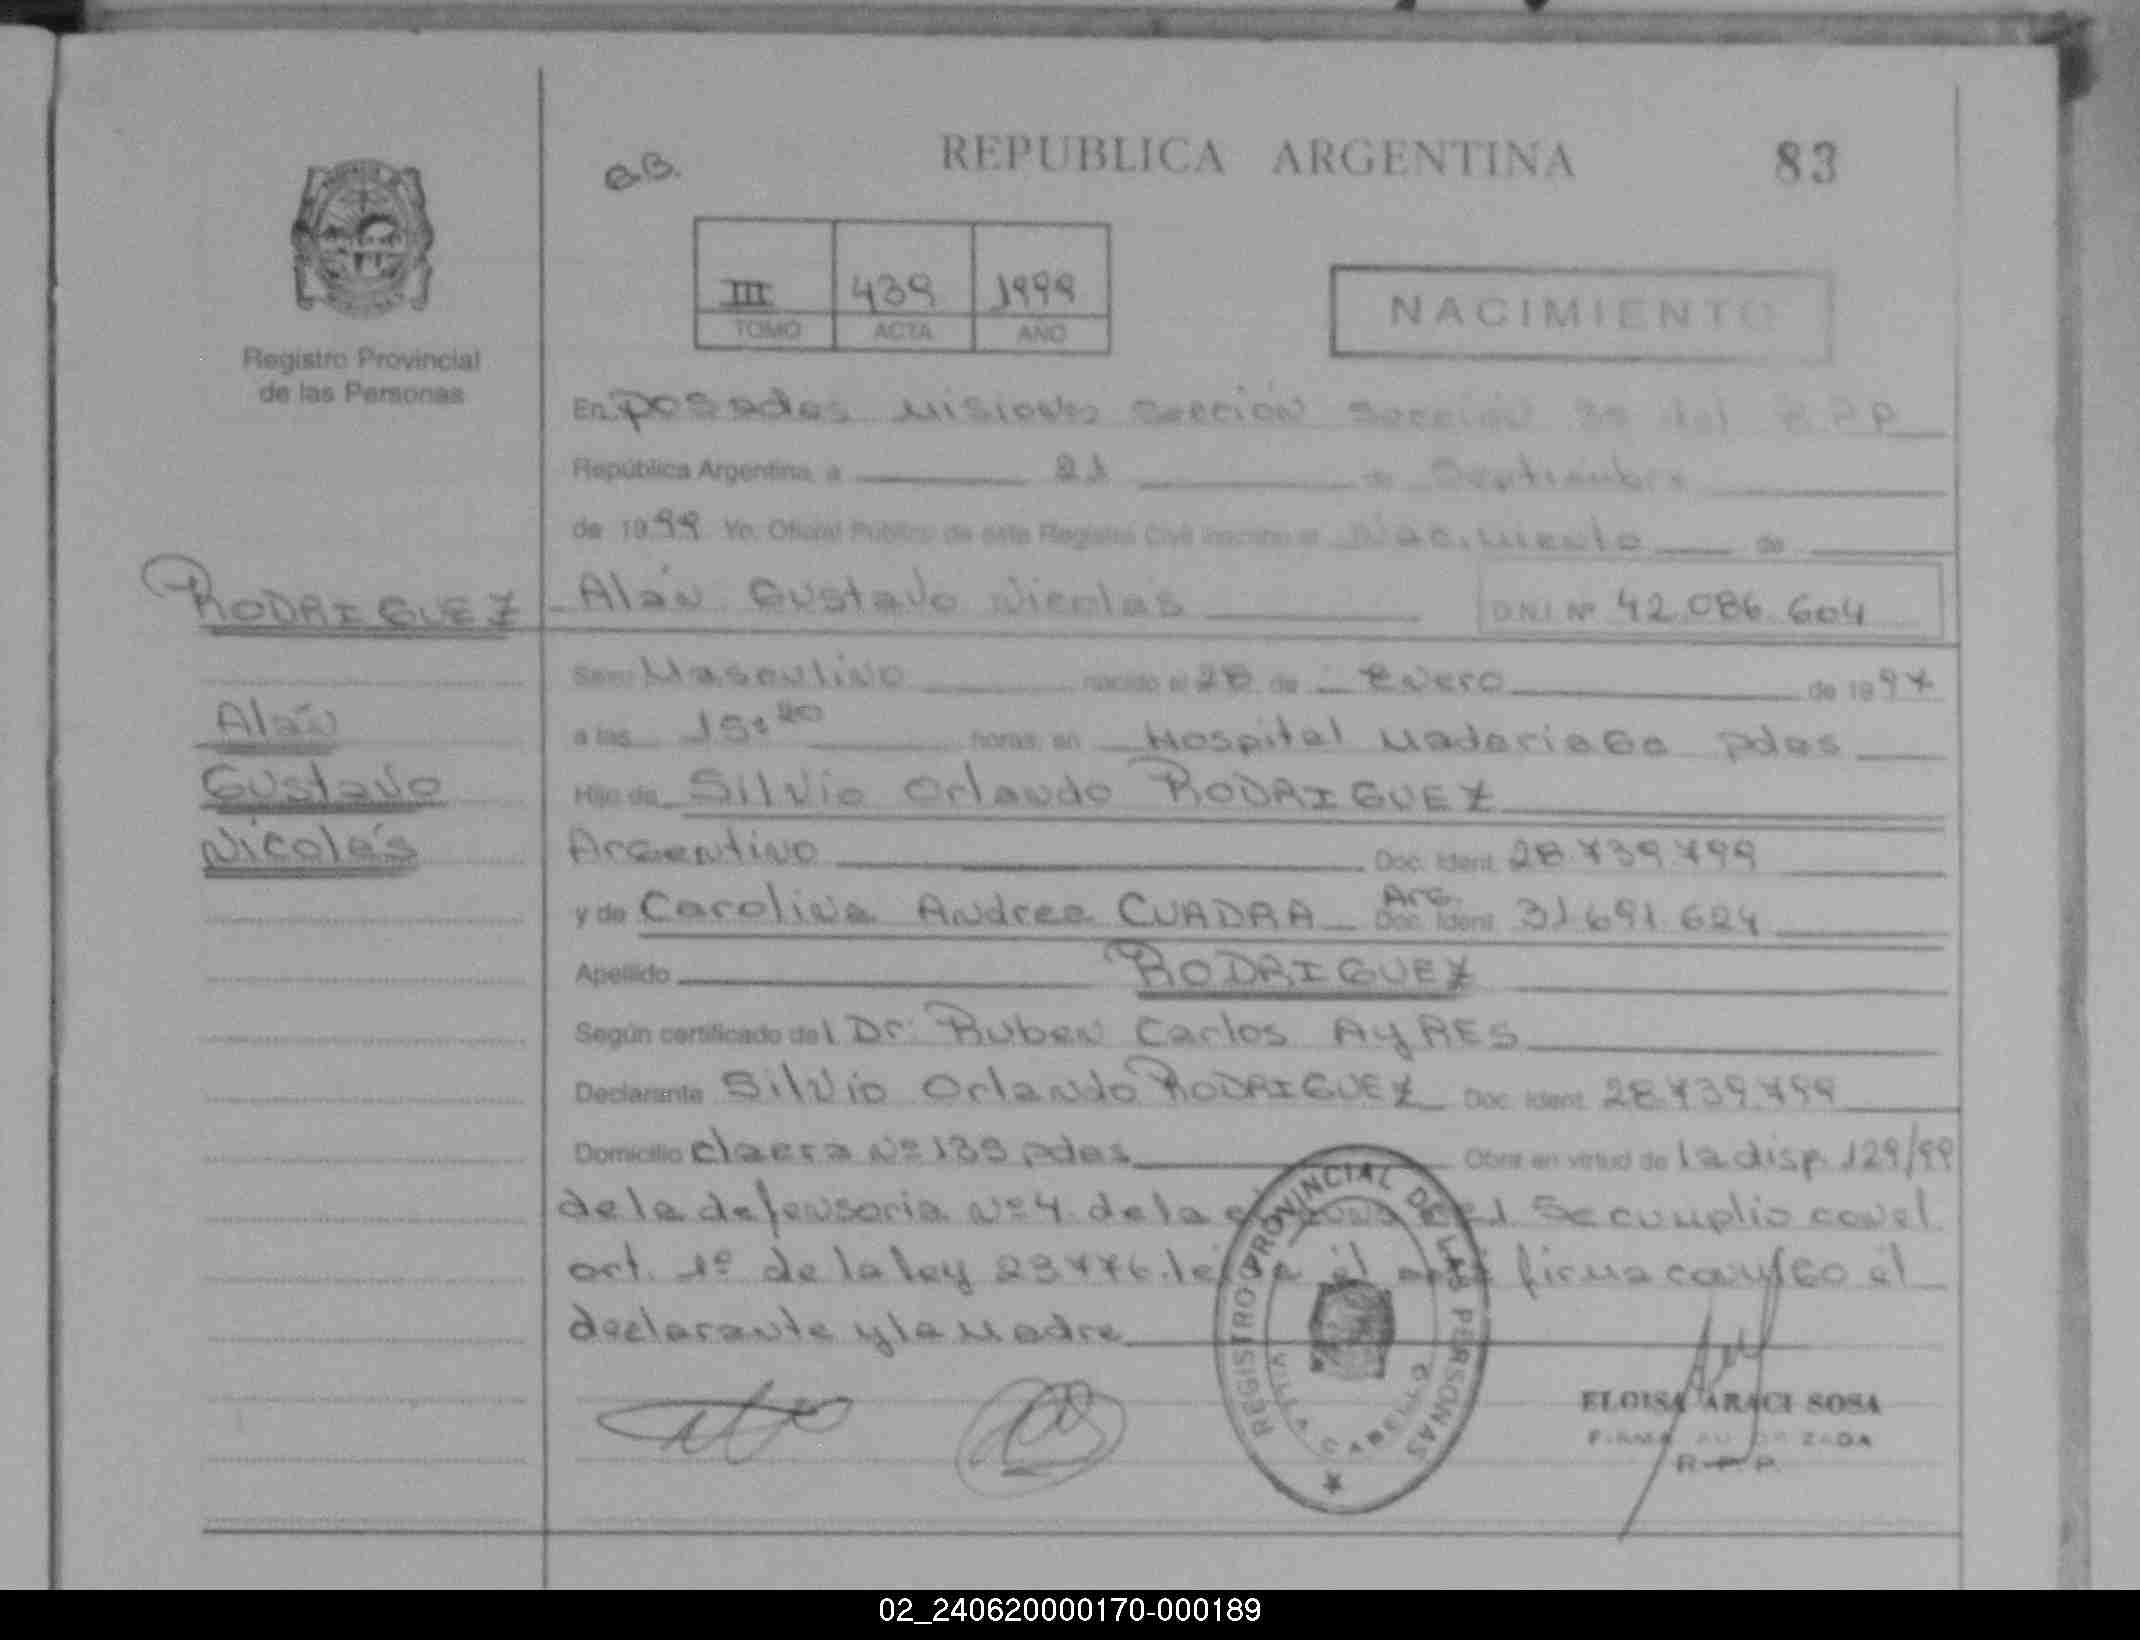 REPUBLICA ARGENTINA
83
III 439 1999
TOMO ACTA AÑO
NACIMIENTO
Registro Provincial
de las Personas
En Posadas Misiones sección sección 3a del R.P.P
República Argentina, a 21 de Septiembre
de 1999 Yo, Oficial Público de este Registro Civil inscribo el Nacimiento de
RODRIGUEZ
Alán Gustavo Nicolás D.N.I Nº 42.086.604
Sexo Masculino nacido el 28 de Enero de 1997
Alán
a las 15:20 horas, en Hospital Madariaga pdas
Gustavo
Hijo de Silvio Orlando RODRIGUEZ
Nicolás
Argentino Doc. Ident. 28.739.799
y de Carolina Andrea CUADRA Arg. Doc. Ident. 31.691.624
Apellido RODRIGUEZ
Según certificado del Dr: Ruben Carlos AyRES
Declarante Silvio Orlando RODRIGUEZ Doc. Ident. 28.739.799
Domicilio Nº 139 pdas Obra en virtud de la disp. 129/99
de la defensoria Nº 4 de la Se cumplio con el
art. 1º de la ley 23776. firma conmigo el
declarante y la Madre
REGISTRO PROVINCIAL DE LAS PERSONAS
VILLA CABELLO
ELOISA ARACI SOSA
FIRMA AUTORIZADA
R.P.P.
02_240620000170-000189